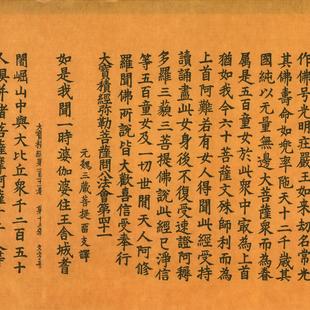 作佛号光明莊嚴王如来劫名常光
其佛壽命如兜率陁天十二千歲其
國純以无量無邊大菩薩衆而為眷
属是五百童女於此衆中㝡為上首
猶如我今六十菩薩文殊師利而為
上首阿難若有女人得聞此經受持
讀誦盡此女身後不復受速證阿耨
多羅三藐三菩提佛說此經已淨信
等五百童女及一切世間天人阿修
羅聞佛所說皆大歡喜信受奉行
大寳積經弥勒菩薩問八法會第四十一
元魏三藏菩提畄支譯
如是我聞一時婆伽婆住王舍城耆
闍崛山中與大比丘衆千二百五十
人俱并諸菩薩摩訶薩